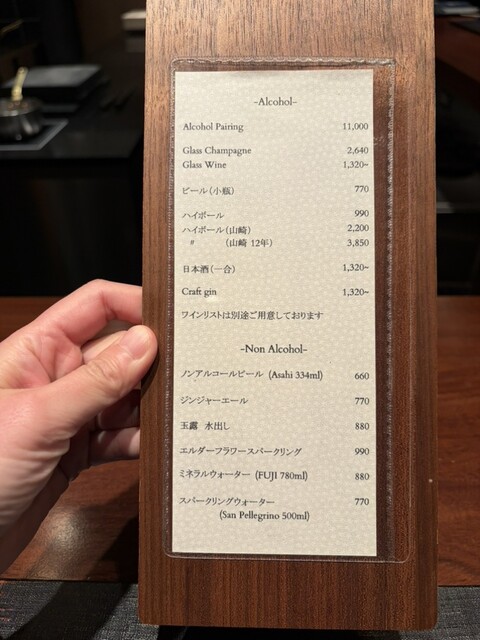 -Alcohol-
Alcohol Pairing 11,000
Glass Champagne 2,640
Glass Wine 1,320~
ビール(小瓶) 770
ハイボール 990
ハイボール(山崎) 2,200
〃 (山崎 12年) 3,850
日本酒(一合) 1,320~
Craft gin 1,320~
ワインリストは別途ご用意しております
-Non Alcohol-
ノンアルコールビール (Asahi 334ml) 660
ジンジャーエール 770
玉露 水出し 880
エルダーフラワースパークリング 990
ミネラルウォーター (FUJI 780ml) 880
スパークリングウォーター 770
(San Pellegrino 500ml)